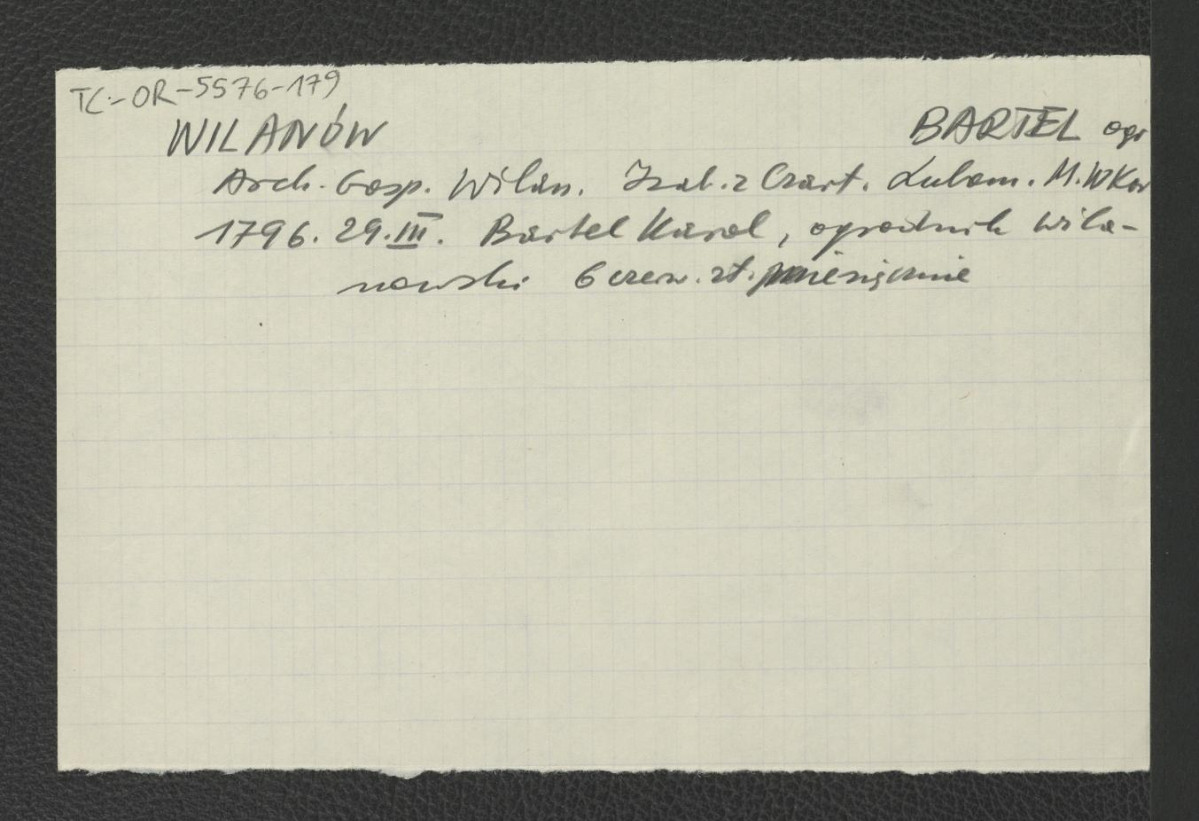 TC-OR-5576-179
WILANÓW BARTEL ogr
Arch. Gosp. Wilan. Izab. z Czart. Lubom. M.W.Kor
1796. 29.III. Bartel Karol, ogrodnik wila-
nowski 6 czerw. zł. miesięcznie